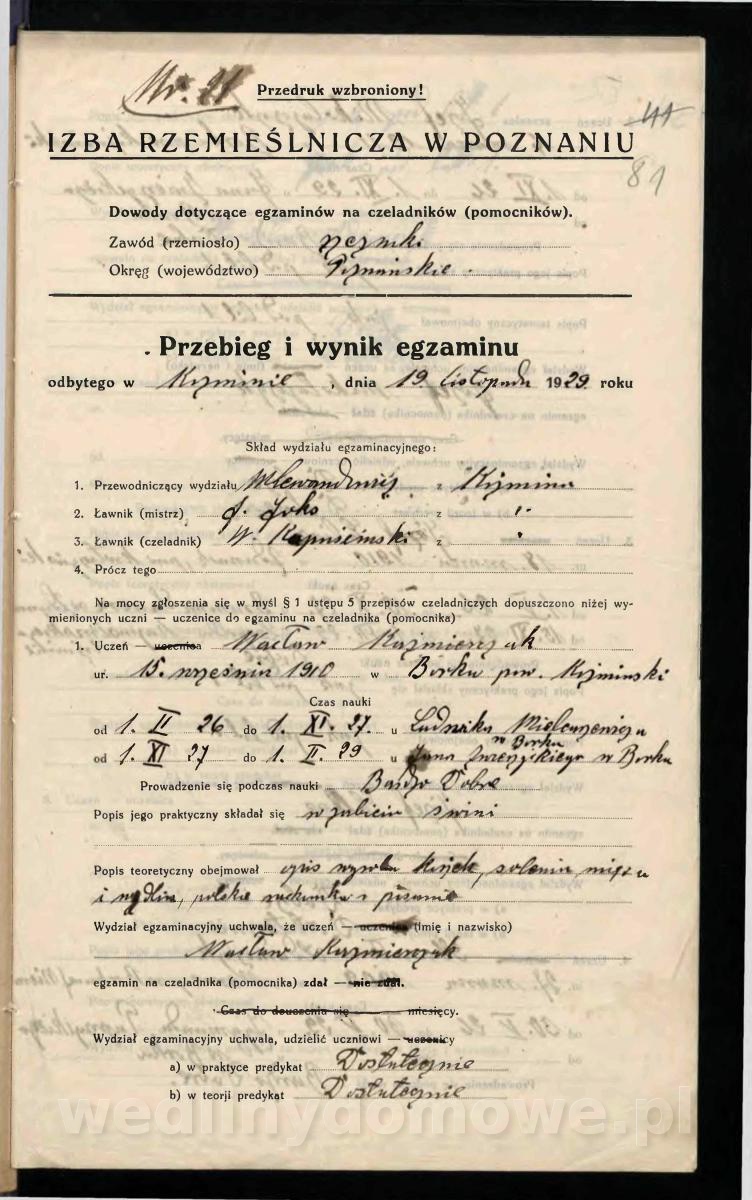 Nr. 21
Przedruk wzbroniony!
41
IZBA RZEMIEŚLNICZA W POZNANIU
81
Dowody dotyczące egzaminów na czeladników (pomocników).
Zawód (rzemiosło) rzeźnicki
Okręg (województwo) Poznańskie.
Przebieg i wynik egzaminu
odbytego w Koźminie, dnia 19 listopada 1929 roku
Skład wydziału egzaminacyjnego:
1. Przewodniczący wydziału z Koźmina
2. Ławnik (mistrz) J. z "
3. Ławnik (czeladnik) W. z "
4. Prócz tego
Na mocy zgłoszenia się w myśl § 1 ustępu 5 przepisów czeladniczych dopuszczono niżej wy-
mienionych uczni — uczenice do egzaminu na czeladnika (pomocnika)
1. Uczeń — uczenica Wacław Kaźmierczak
ur. 15. września 1910 w Borku pow. Koźmiński
Czas nauki
od 1. II 26 do 1. XI. 27. u Ludwika
w Borku
od 1. XI 27 do 1. II. 29 u Jana w Borku
Prowadzenie się podczas nauki Bardzo Dobre
Popis jego praktyczny składał się w zabiciu świni
Popis teoretyczny obejmował opis wyrobu solenia mięsa
i wędlin, polskie rachunki i pisanie
Wydział egzaminacyjny uchwala, że uczeń — uczenica (imię i nazwisko)
Wacław Kaźmierczak
egzamin na czeladnika (pomocnika) zdał — nie zdał.
Czas do douczenia się miesięcy.
Wydział egzaminacyjny uchwala, udzielić uczniowi — uczenicy
a) w praktyce predykat Dostatecznie
b) w teorji predykat Dostatecznie
wedlinydomowe.pl